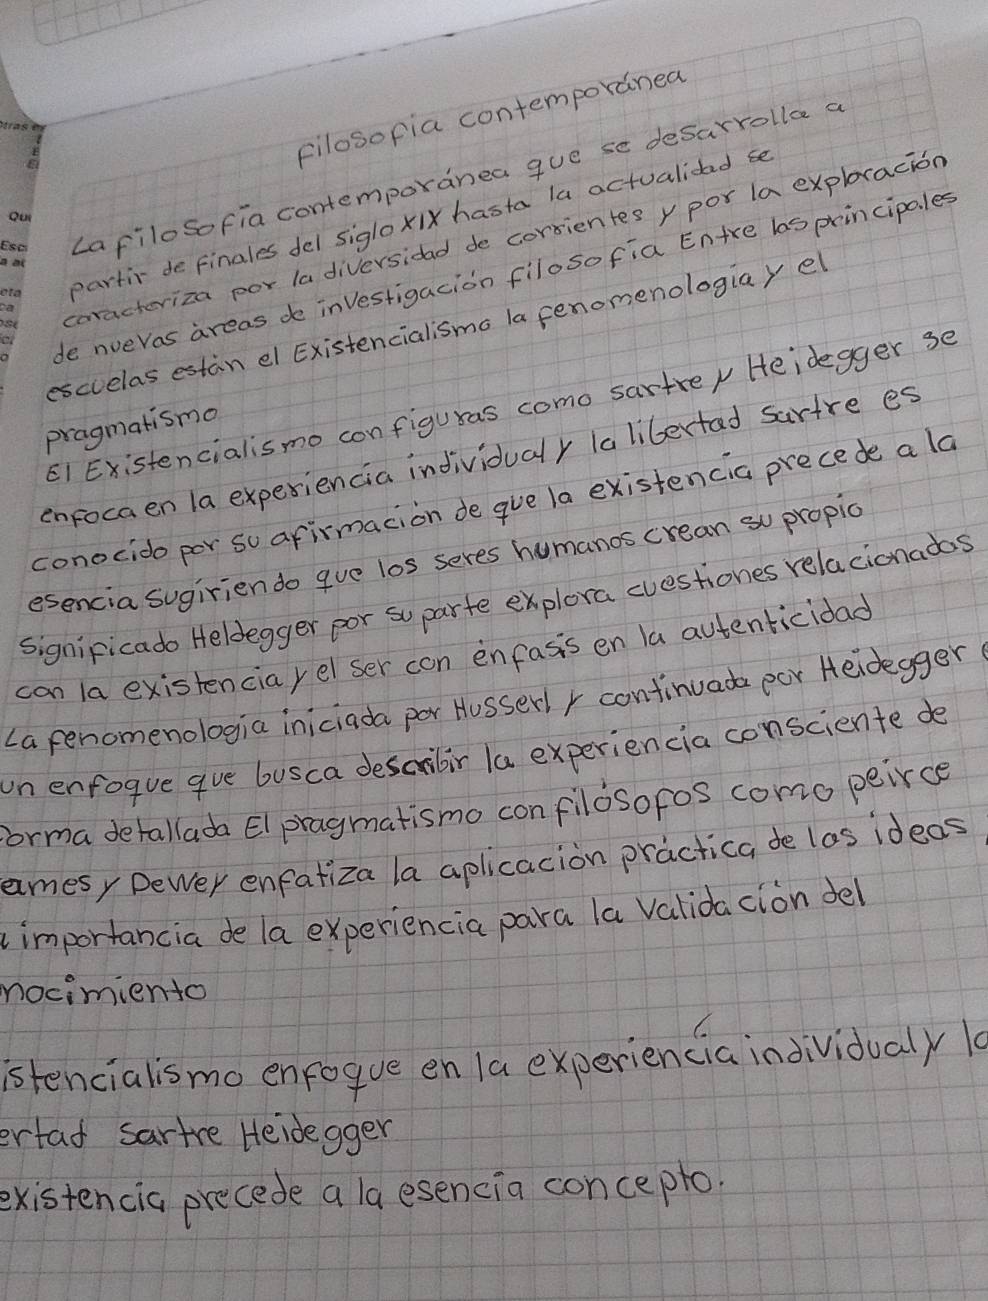 Filosofia contemporánea
La filosofía contemporánea que se desarrolla a
partir de finales del siglo XIX hasta la actualidad se
caracteriza por la diversidad de corrientes y por la exploración
de nuevas àreas de investigación filosofía Entre las principales
escuelas están el Existencialismo la fenomenologia y el
pragmatismo
El Existencialismo con figuras como sartre y Heidegger se
enfoca en la experiencia individual y la libertad Sartre es
conocido por su afirmación de que la existencia precede a la
esencia sugiriendo que los seres humanos crean su propio
significado Heldegger por su parte explora cuestiones relacionadas
con la existencia y el ser con énfasis en la autenticidad
La fenomenologia iniciada por Husserl y continuada por Heidegger
un enfoque que busca describir la experiencia consciente de
forma detallada El pragmatismo con filósofos como peirce
ames y Dewey enfatiza la aplicación práctica de las ideas
importancia de la experiencia para la validación del
nocimiento
istencialismo enfoque en la experiencia individual y la
ertad Sartre Heidegger
existencia precede a la esencia concepto.